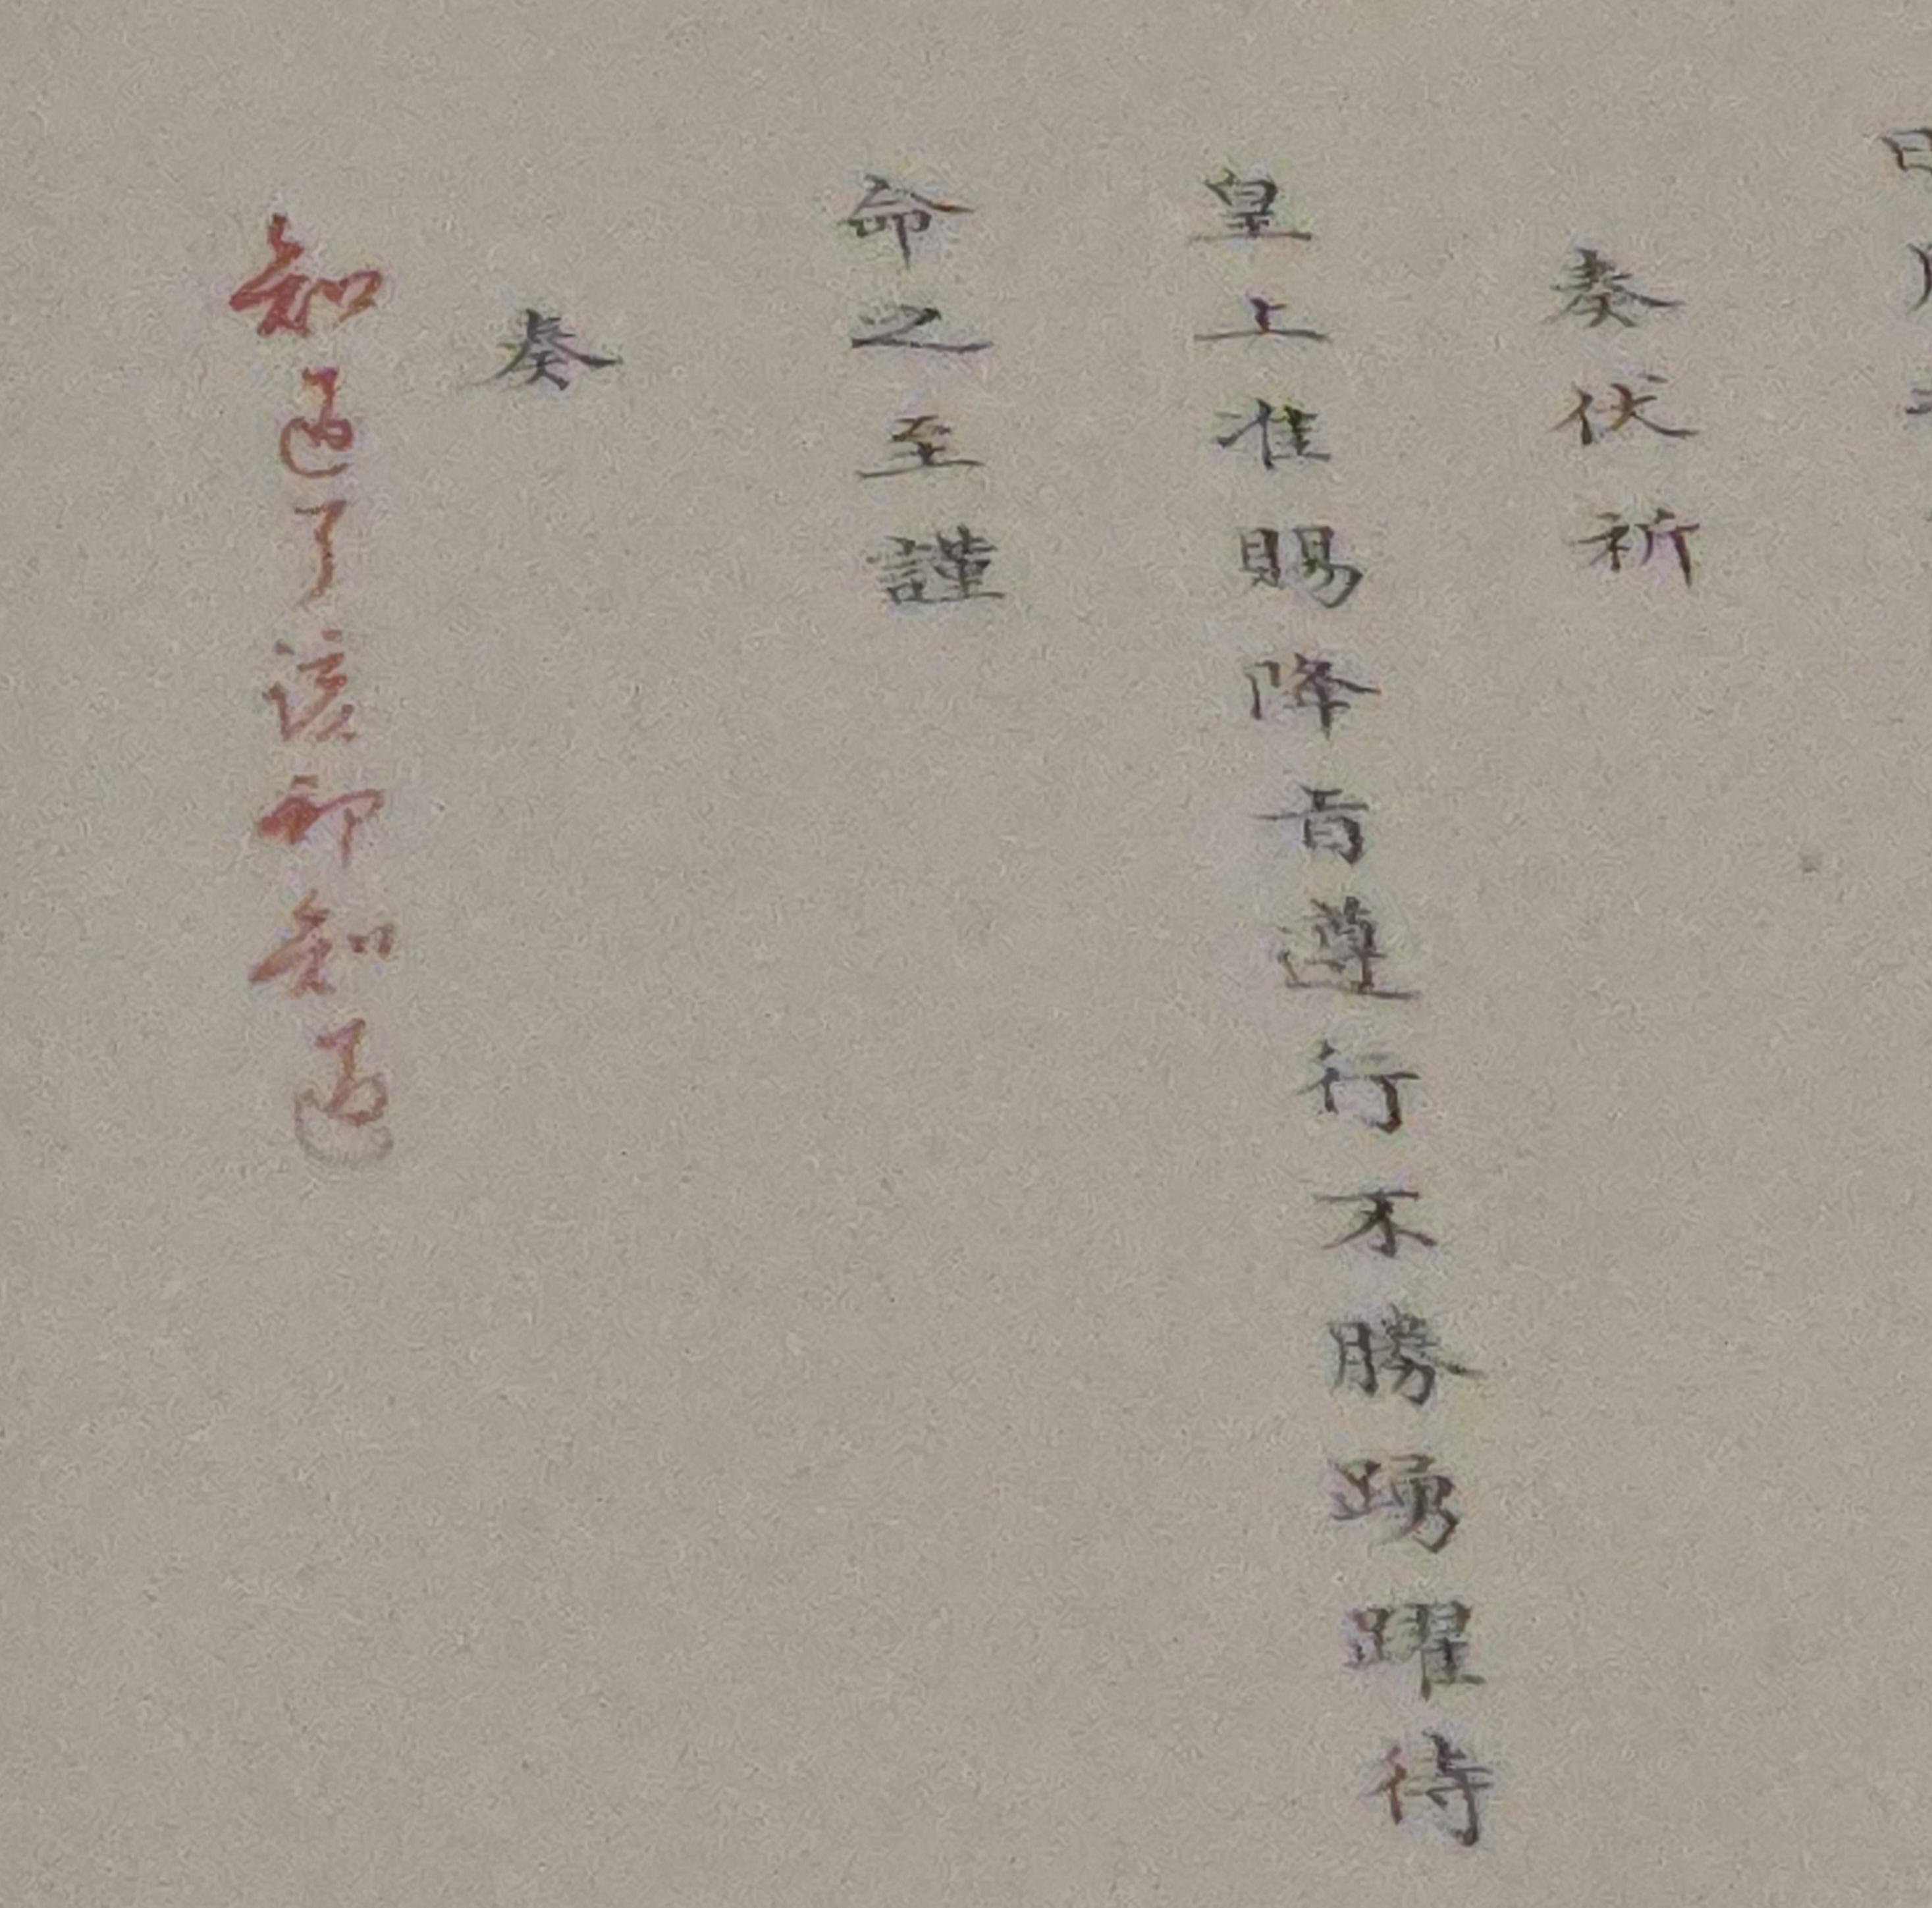 奏伏祈
皇上准賜降旨遵行不勝踴躍待
命之至謹
奏
知道了該部知道